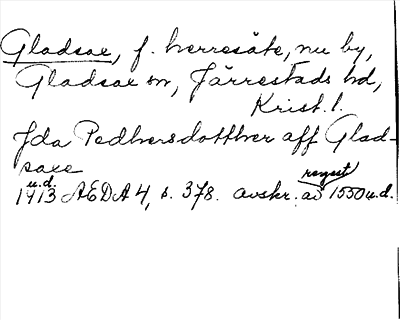 Gladsax, f. herresäte, nu by,
Gladsax sn, Järrestads hd,
Krist. l.
Jda Pedhersdotther aff Glad-
saxe
1413 u.d. AEDA 4, s. 378. avskr. av regest 1550 u.d.